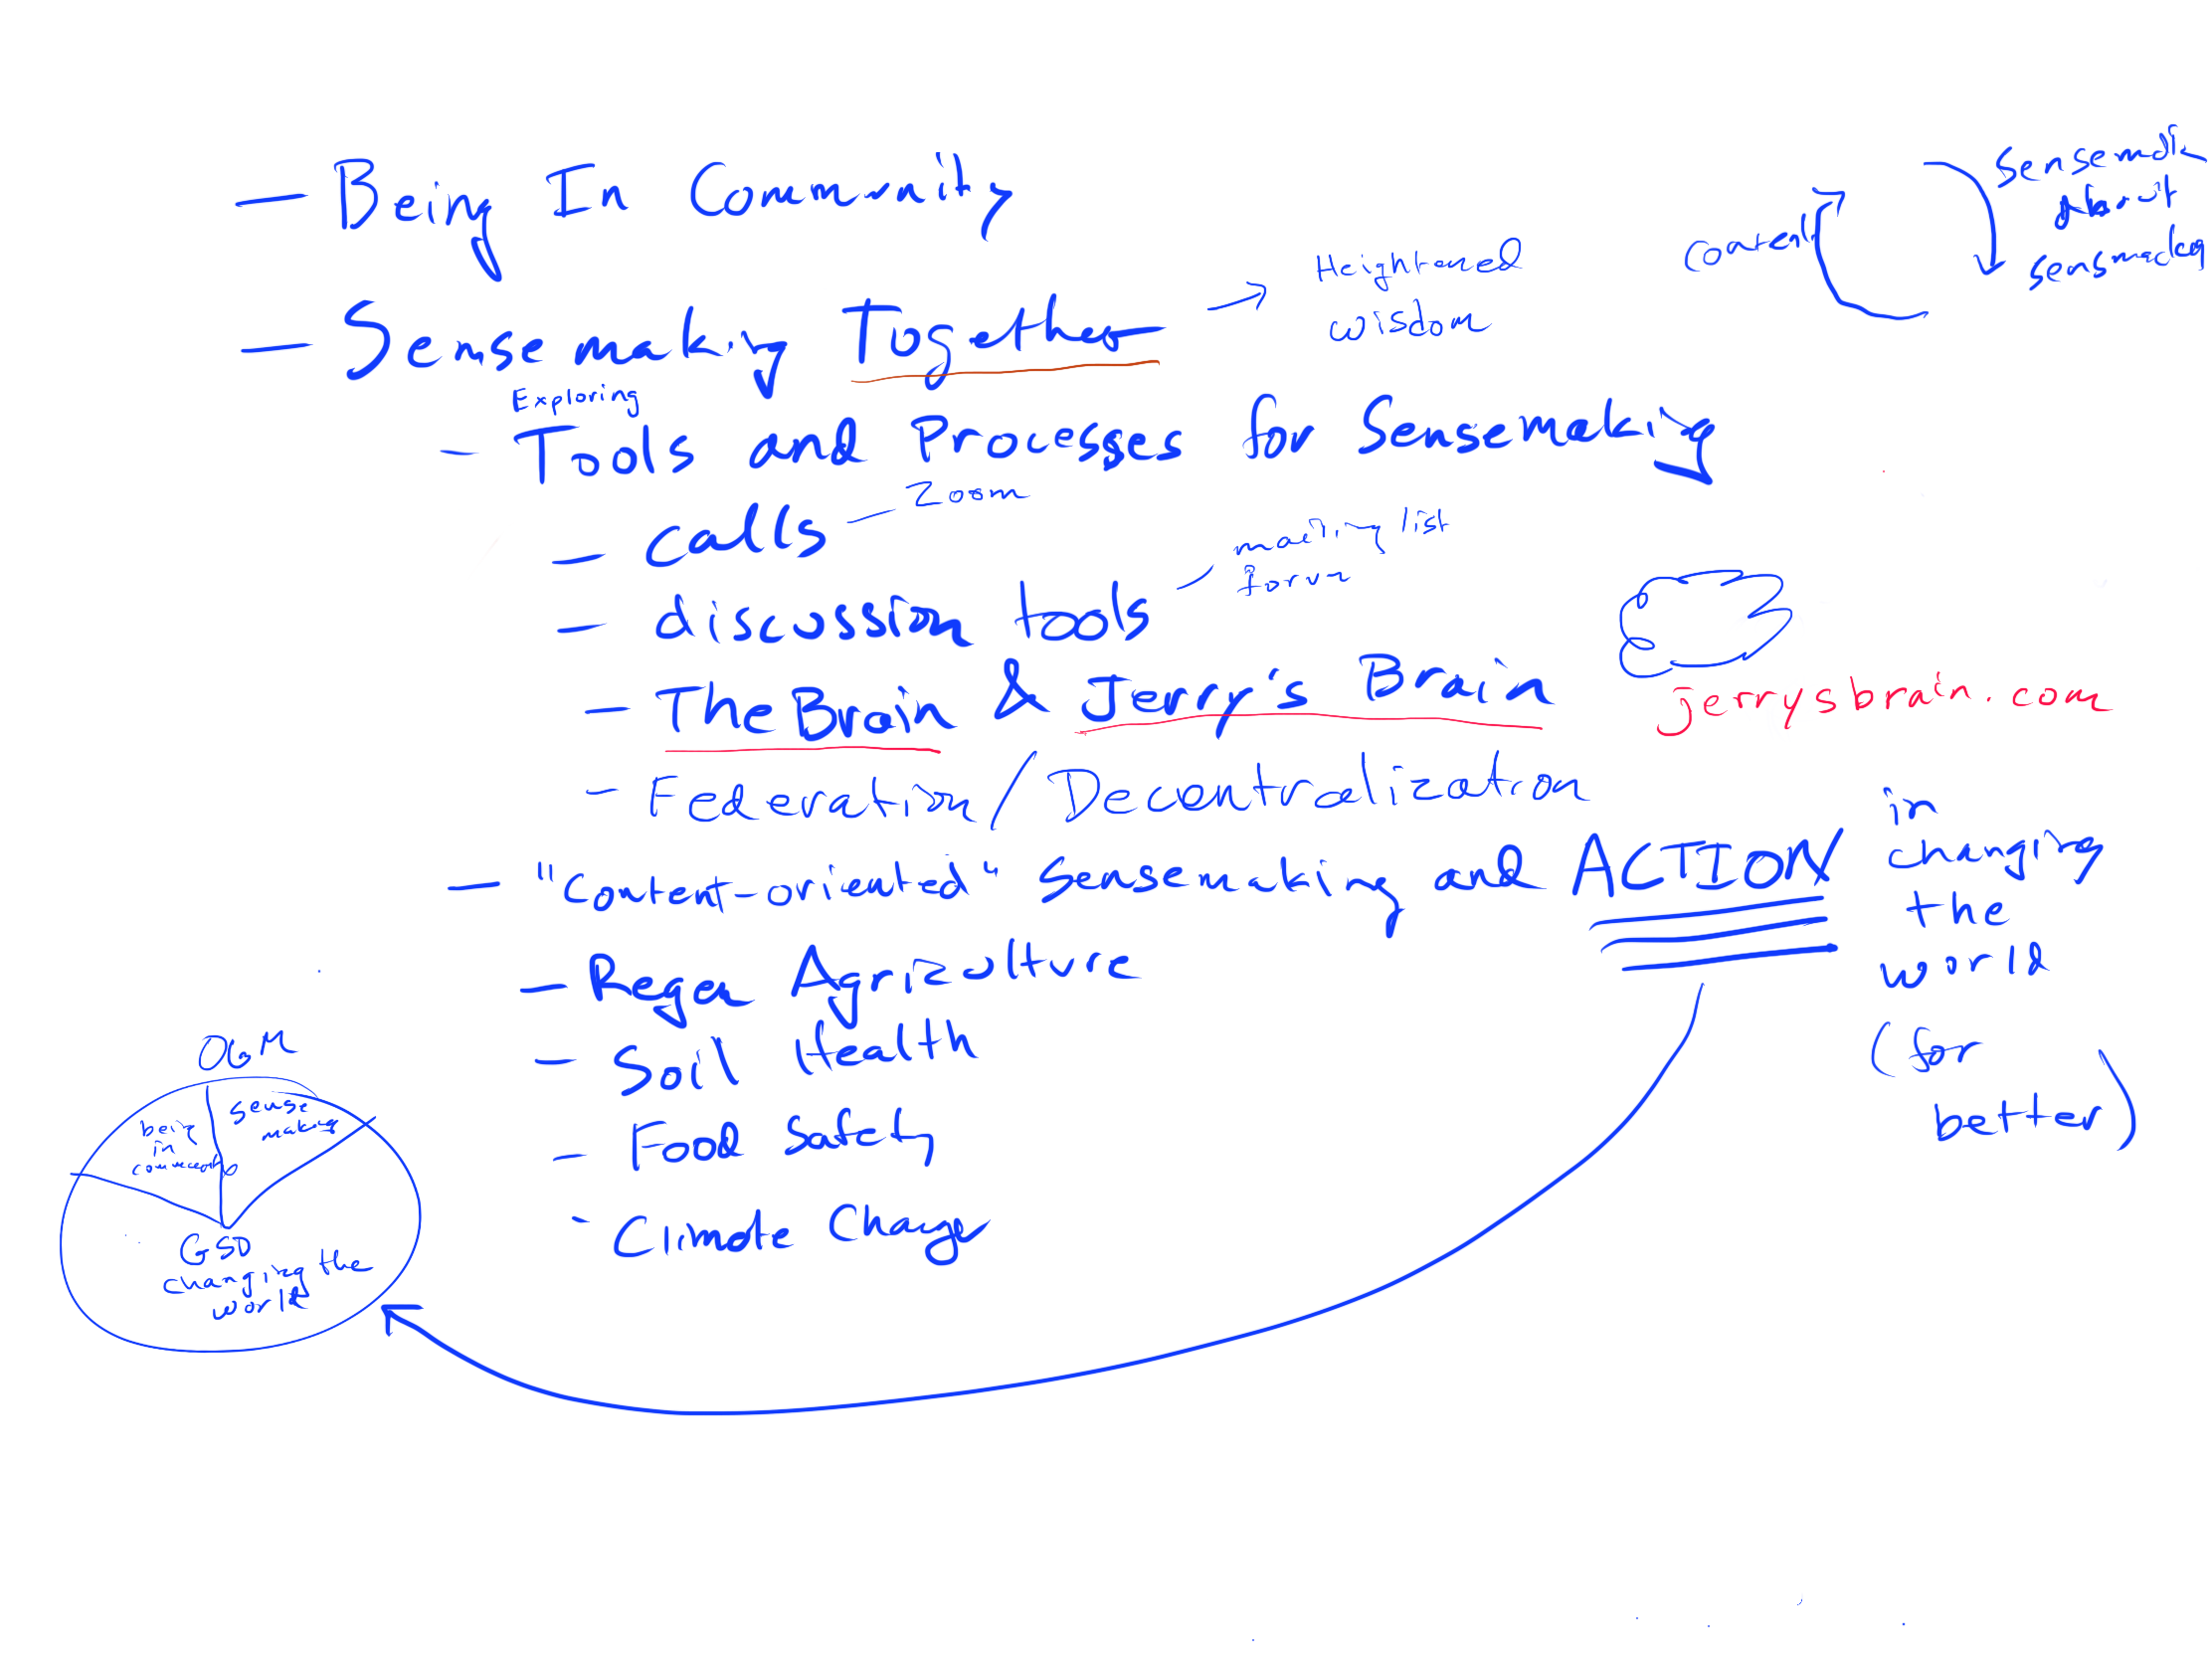 - Being In Community
- Sensemaking Together → Heightened
wisdom
content
about
Exploring
- Tools and Processes for Sensemaking
- calls - Zoom
- discussion tools - mailing list
forum
- The Brain & Jerry's Brain
jerrysbrain.com
- Federation / Decentralization
- "Content-oriented" sensemaking and ACTION
in
changing
the
world
(for
better)
- Regen Agriculture
- Soil Health
- Food Safety
- Climate Change
OGM
being
in
community
sense
making
GSD
changing the
world